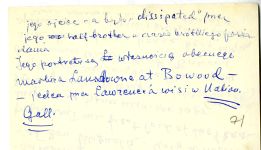 jego ojciec – a było „dissipated" przez
jego half-brother – w czasie krótkiego posia
dania
Jego portret są własnością obecnego
markiza Lansdowne at Bowood –
– jeden przez Lawrence'a wisi w Nation.
Gall.
71